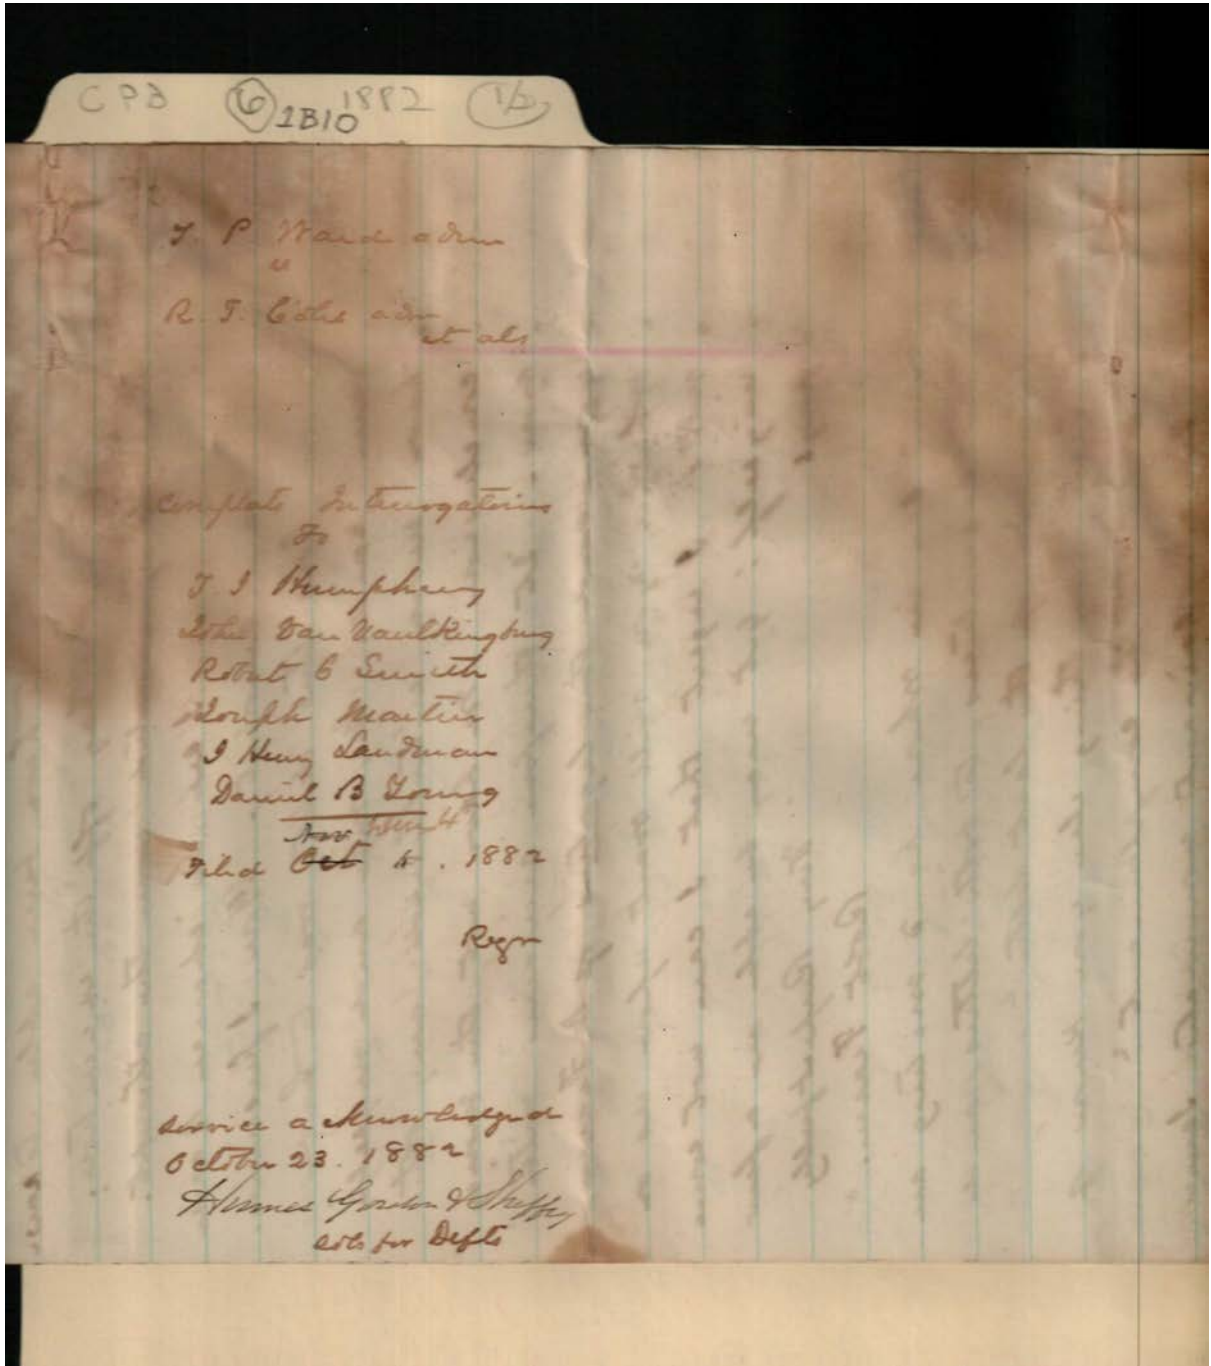 CPB 6 1B10 1882 1/2
T. P. Ward adm
vs
R. T. Coles adm
et als
Complts Interrogatories
To
T J Humphrey
John Van Vaulkingburg
Robert C Smith
Joseph Martin
J Henry Landman
Daniel B Young
Nov
Filed Oct 4. 1882
Regr
Service acknowledged
October 23. 1882
Humes Gordon & Sheffey
sols for Defts